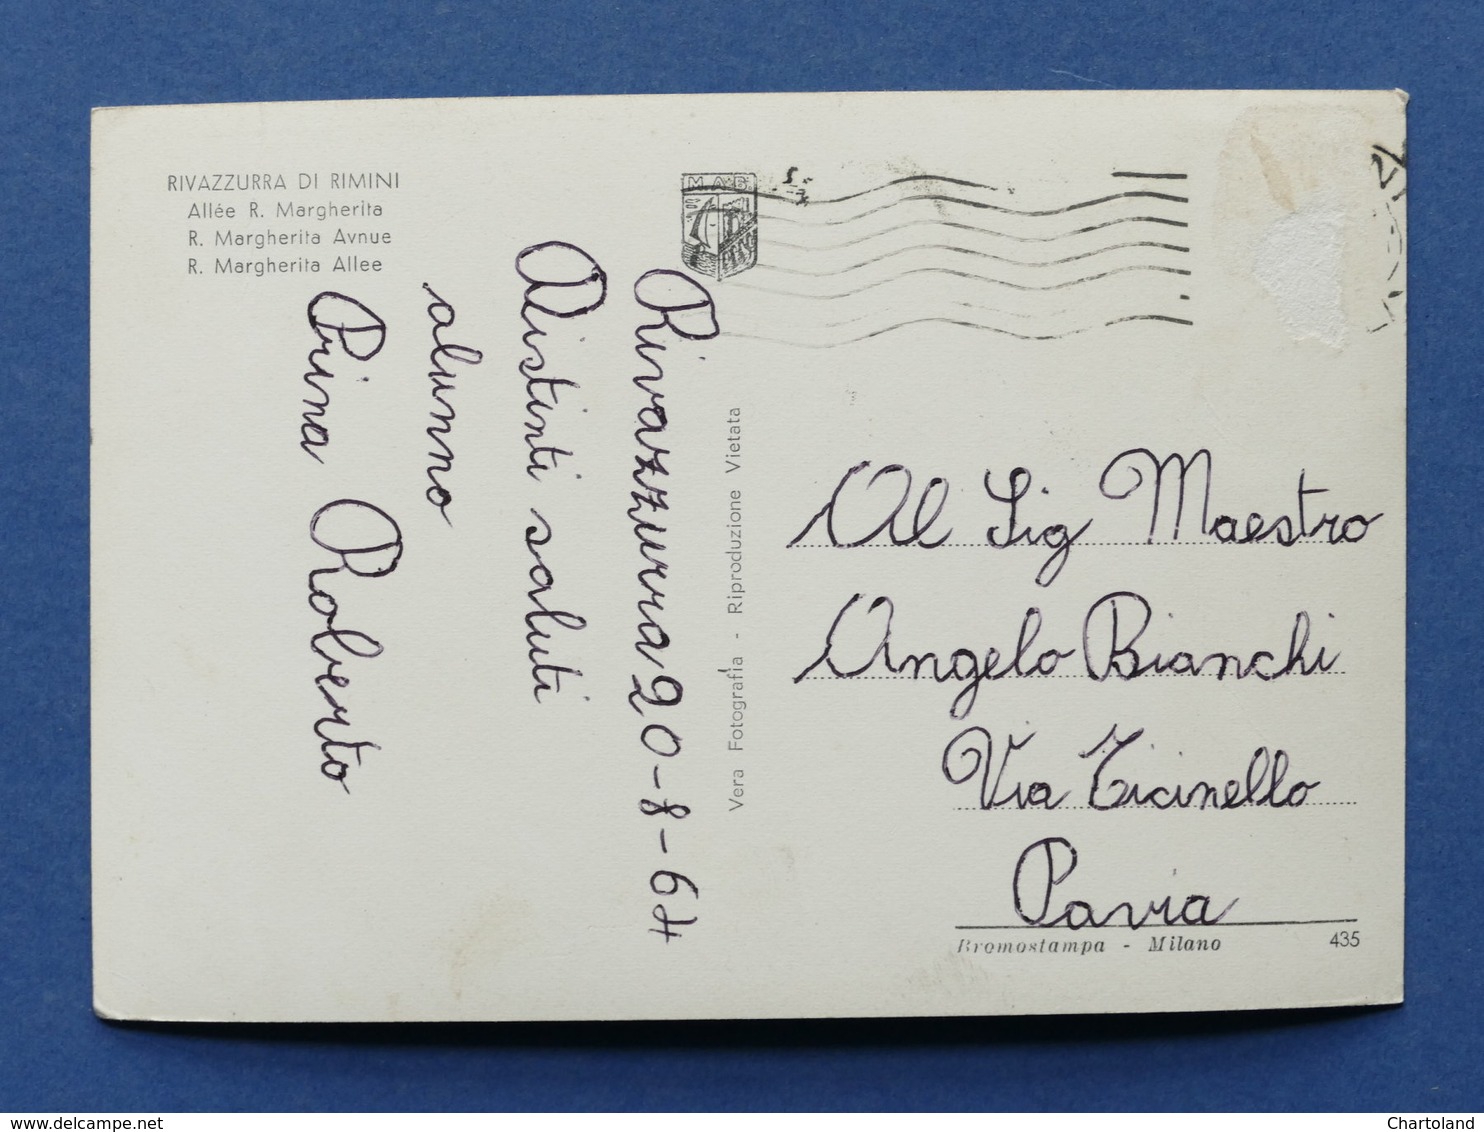 RIVAZZURRA DI RIMINI
Allée R. Margherita
R. Margherita Avnue
R. Margherita Allee
M.A.B.
Rivazzurra 20-8-67
Distinti saluti
alunno
Prina Roberto
Vera Fotografia - Riproduzione Vietata
Al Sig Maestro
Angelo Bianchi
Via Ticinello
Pavia
Bromostampa - Milano
435
www.delcampe.net
Chartoland